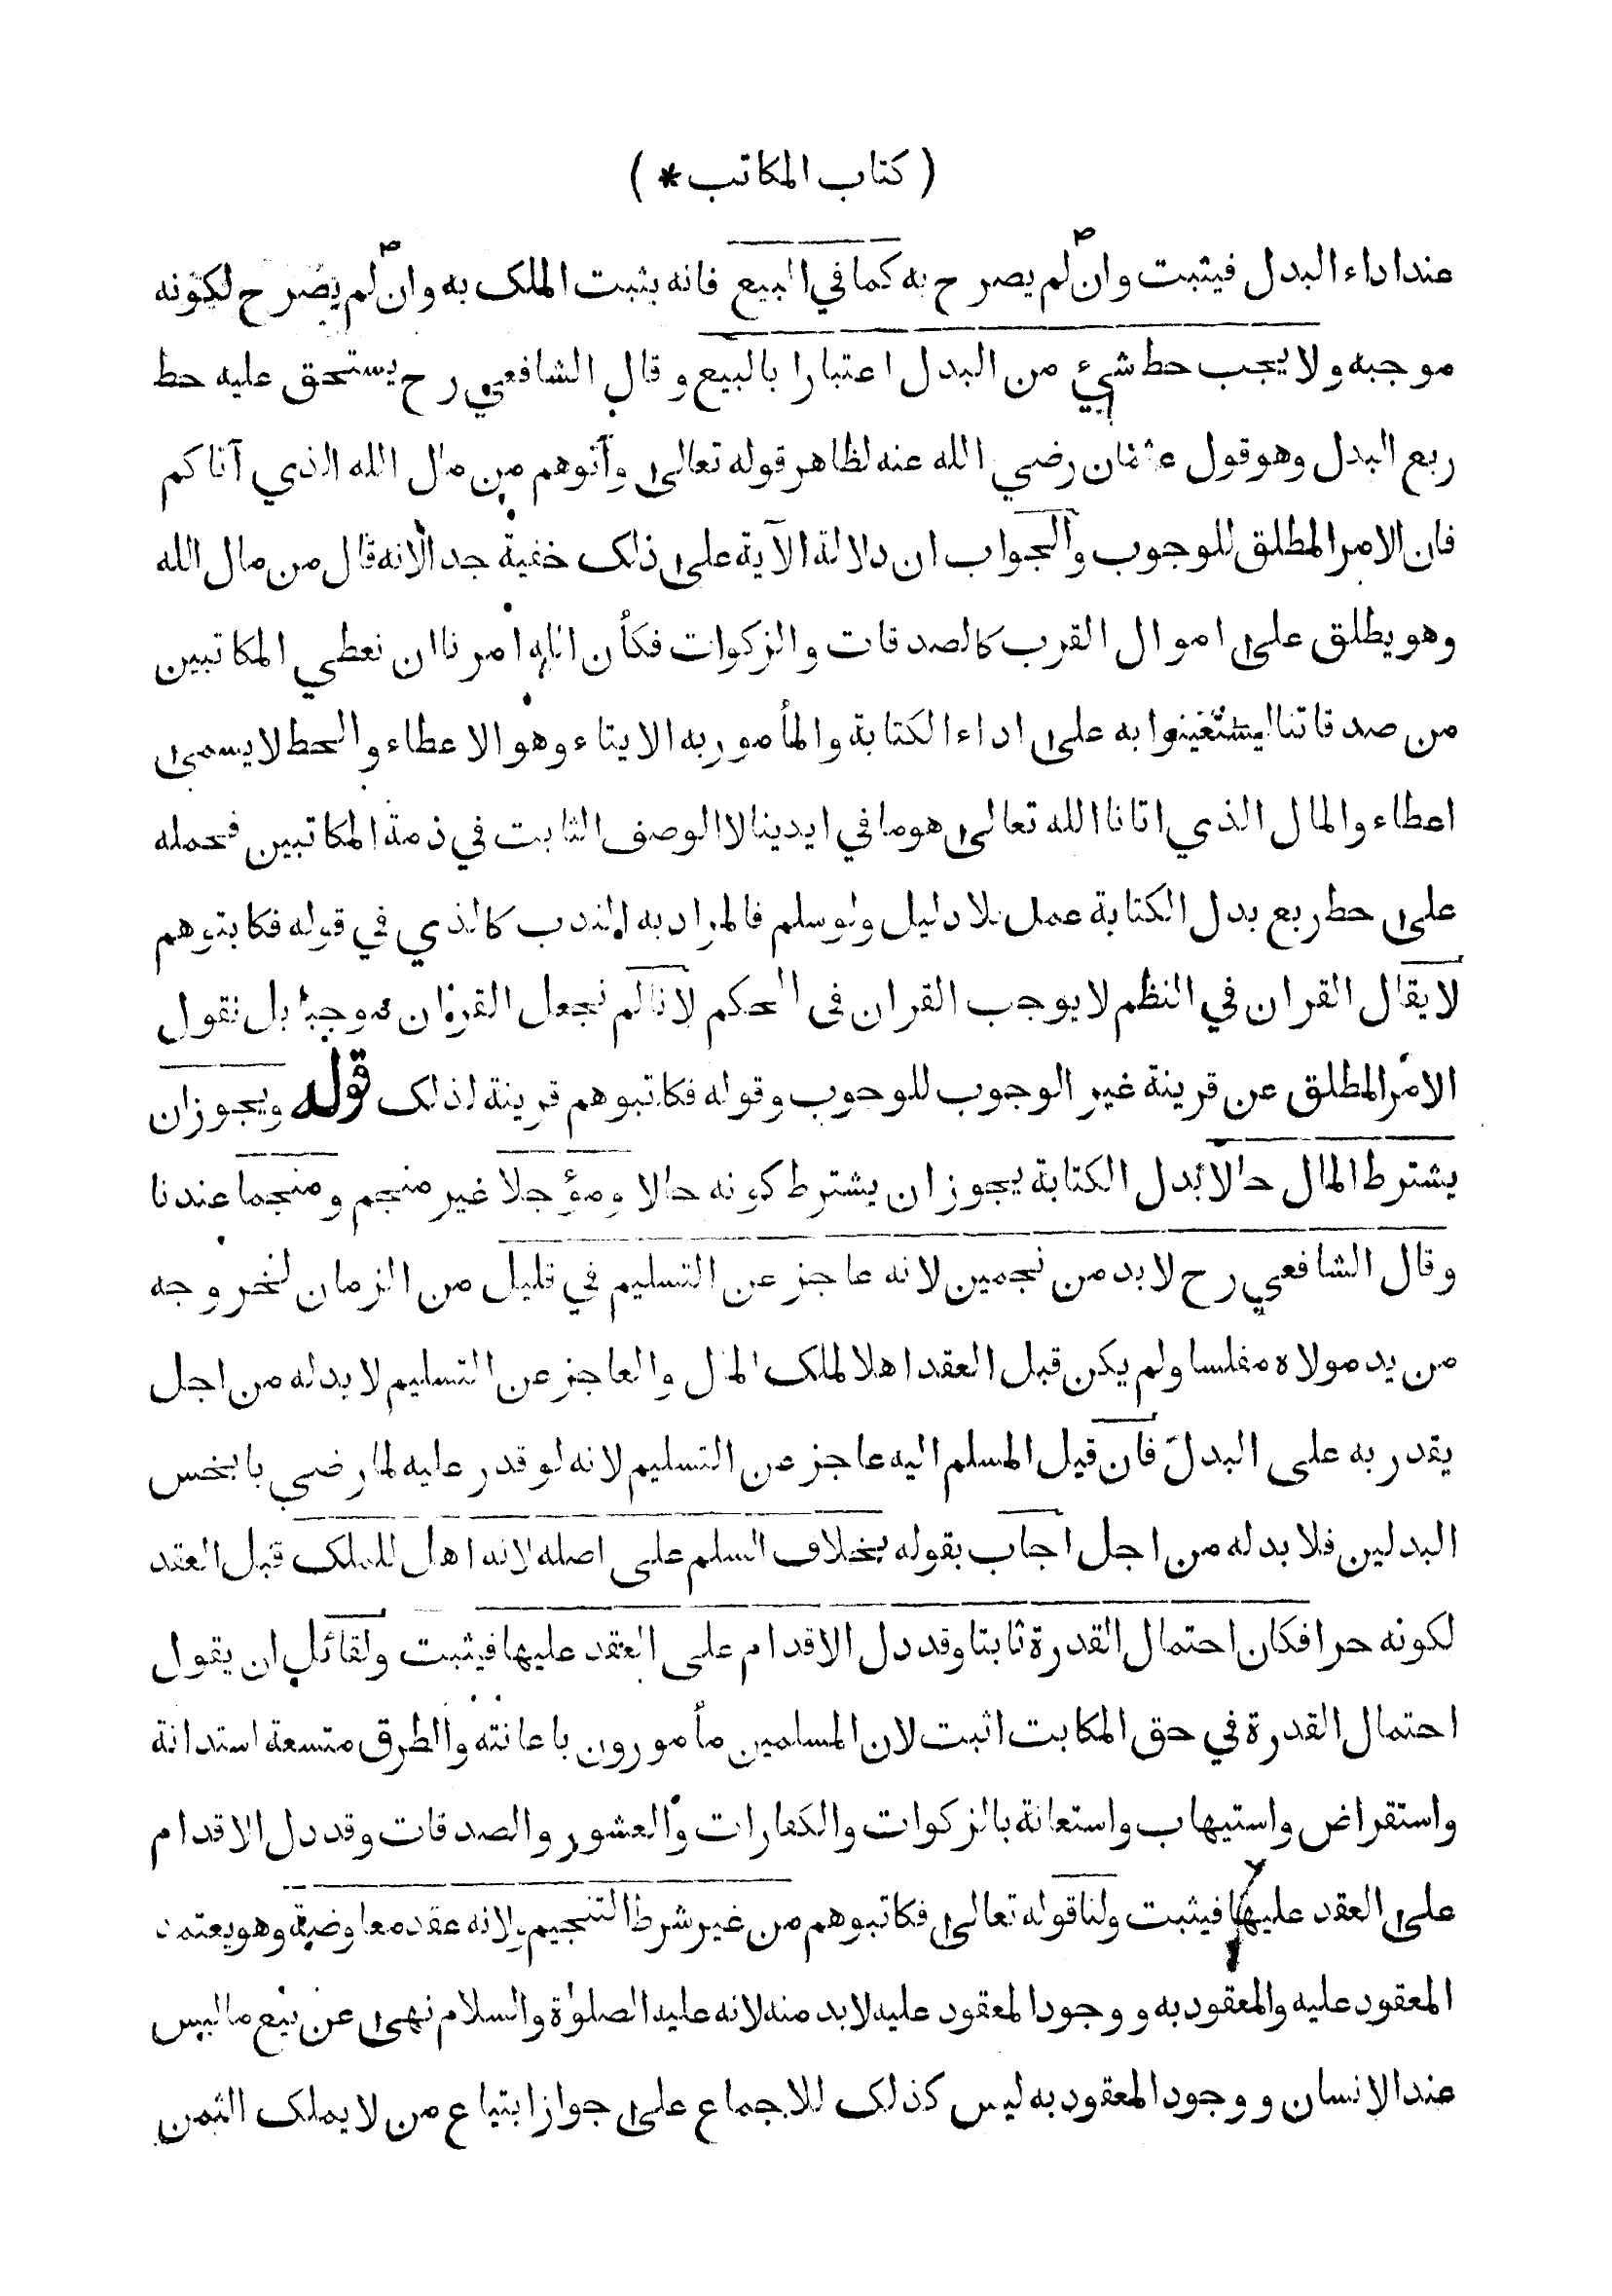 ( كتاب المكاتب * )
عند اداء البدل فيثبت وان لم يصرح به كما في البيع فانه يثبت الملك به وان لم يصرح لكونه
موجبه ولا يجب حط شيء من البدل اعتبارا بالبيع وقال الشافعي رح يستحق عليه حط
ربع البدل وهو قول عثمان رضي الله عنه لظاهر قوله تعالى وآتوهم من مال الله الذي آتاكم
فان الامر المطلق للوجوب والجواب ان دلالة الآية على ذلك خفية جدا لانه قال من مال الله
وهو يطلق على اموال القرب كالصدقات والزكوات فكأن الله امرنا ان نعطي المكاتبين
من صدقاتنا ليستعينوا به على اداء الكتابة والمأمور به الايتاء وهو الاعطاء والحط لا يسمى
اعطاء والمال الذي اتانا الله تعالى هو ما في ايدينا لا الوصف الثابت في ذمة المكاتبين فحمله
على حط ربع بدل الكتابة عمل بلا دليل ولو سلم فالمراد به الندب كالذي في قوله فكاتبوهم
لا يقال القران في النظم لا يوجب القران في الحكم لانا لم نجعل القران موجبا بل نقول
الامر المطلق عن قرينة غير الوجوب للوجوب وقوله فكاتبوهم قرينة لذلك قوله ويجوز ان
يشترط المال حالا بدل الكتابة يجوز ان يشترط كونه حالا ومؤجلا غير منجم ومنجما عندنا
وقال الشافعي رح لا بد من نجمين لانه عاجز عن التسليم في قليل من الزمان لخروجه
من يد مولاه مفلسا ولم يكن قبل العقد اهلا لملك المال والعاجز عن التسليم لا بد له من اجل
يقدر به على البدل فان قيل المسلم اليه عاجز عن التسليم لانه لو قدر عليه لما رضي بابخس
البدلين فلا بد له من اجل اجاب بقوله بخلاف السلم على اصله لانه اهل للملك قبل العقد
لكونه حرا فكان احتمال القدرة ثابتا وقد دل الاقدام على العقد عليها فيثبت ولقائل ان يقول
احتمال القدرة في حق المكاتب اثبت لان المسلمين مأمورون باعانته والطرق متسعة استدانة
واستقراض واستيهاب واستعانة بالزكوات والكفارات والعشور والصدقات وقد دل الاقدام
على العقد عليها فيثبت ولنا قوله تعالى فكاتبوهم من غير شرط التنجيم ولانه عقد معاوضة وهو يعتمد
المعقود عليه والمعقود به ووجود المعقود عليه لا بد منه لانه عليه الصلوة والسلام نهى عن بيع ما ليس
عند الانسان ووجود المعقود به ليس كذلك للاجماع على جواز ابتياع من لا يملك الثمن